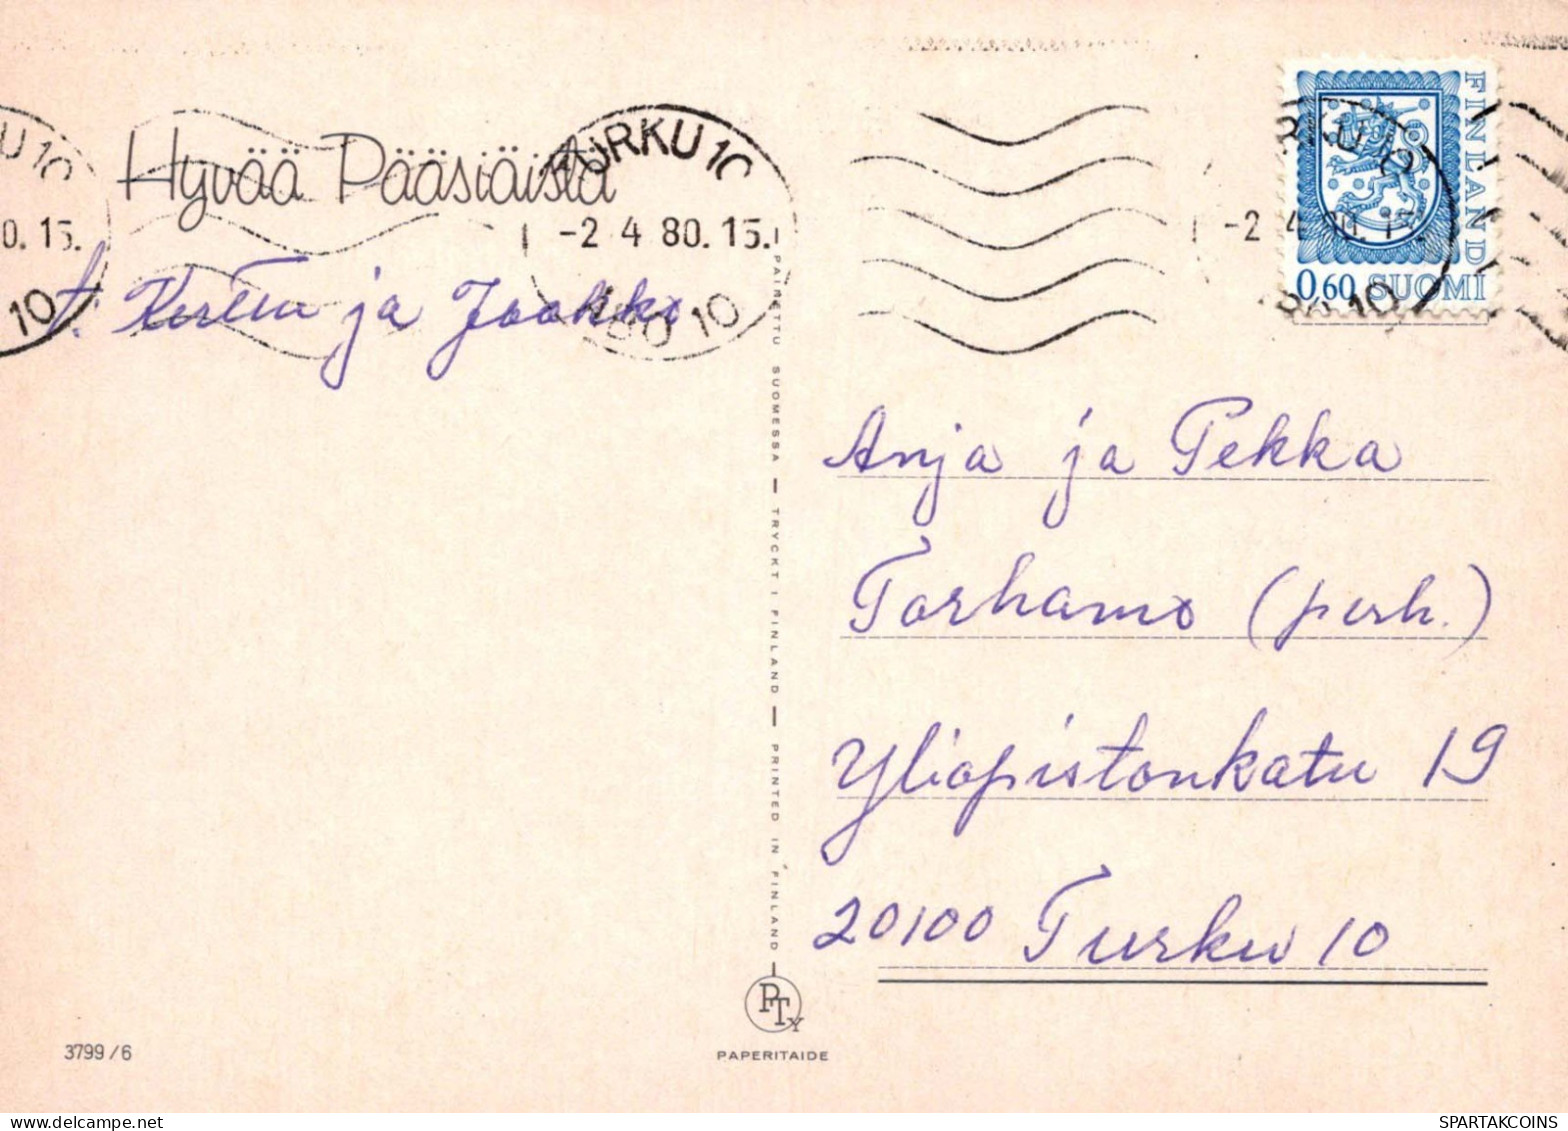 Hyvää Pääsiäistä
t. Kerttu ja Jaakko
U 10
0.15.
10
TURKU 10
-2.4 80.15.
ÅBO 10
FINLAND
0.60 SUOMI
RKU 10
-2.4 80.15.
BO 10
Anja ja Pekka
Torhamo (perh.)
Yliopistonkatu 19
20100 Turku 10
PAINETTU SUOMESSA — TRYCKT I FINLAND — PRINTED IN FINLAND
PTy
PAPERITAIDE
3799/6
SPARTAKCOINS